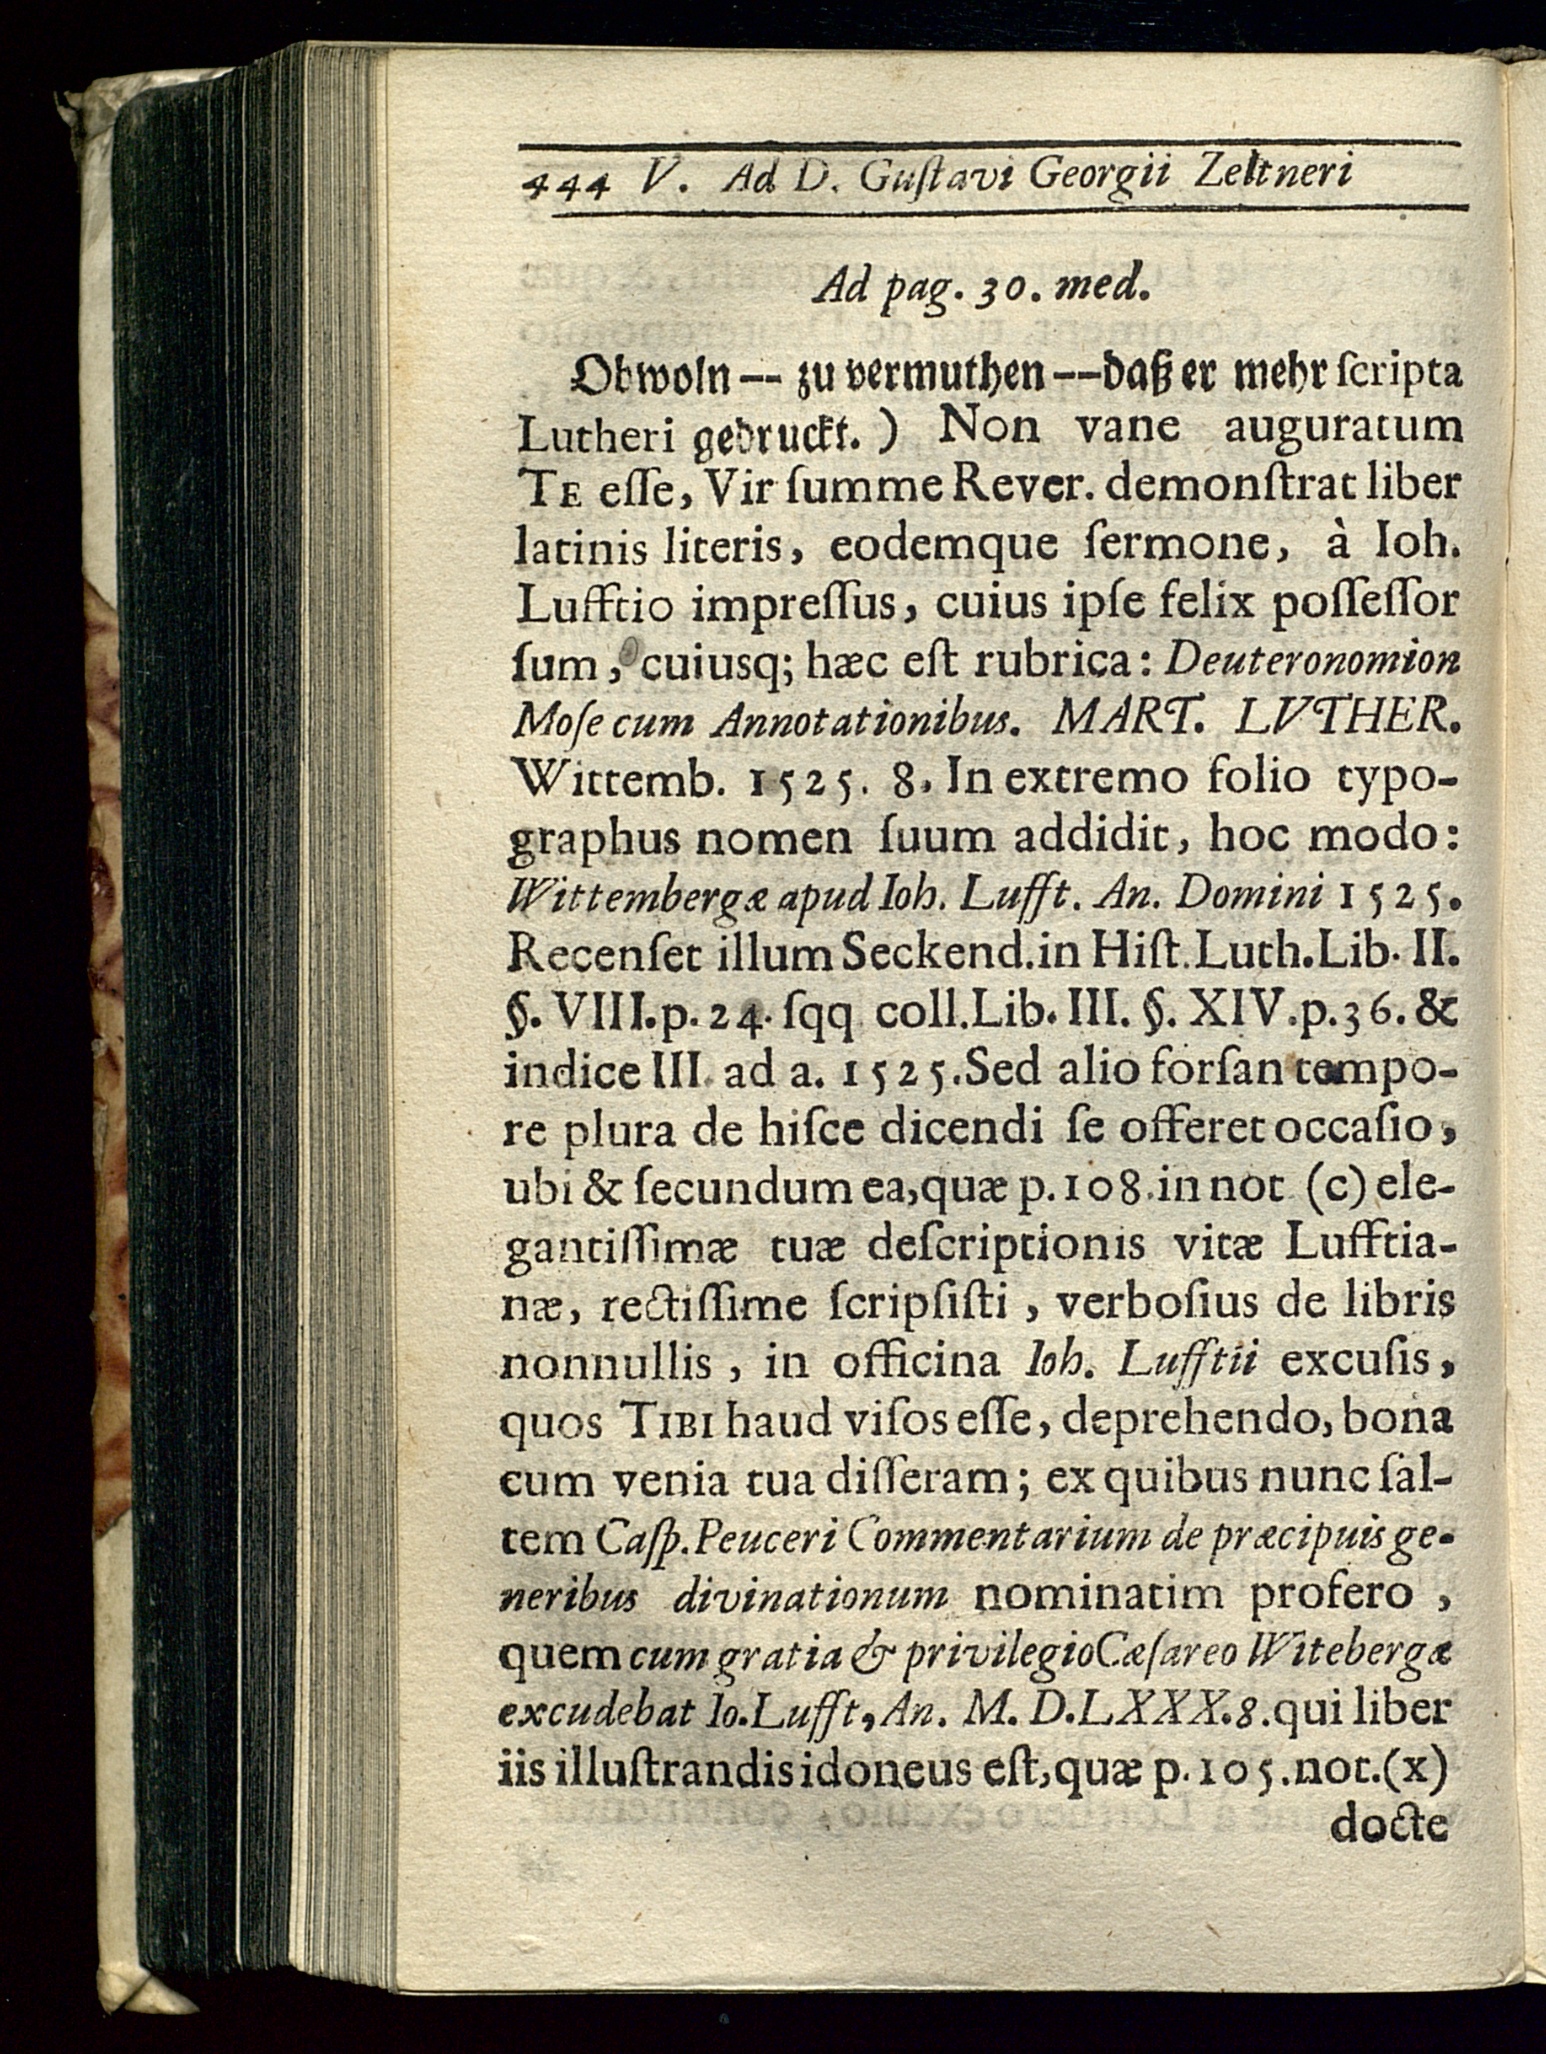 444 V. Ad D. Guſtavi Georgii Zeltneri
Ad pag. 30. med.
Obwoln -- zu vermuthen -- daß er mehr ſcripta
Lutheri gedruckt. ) Non vane auguratum
TE eſſe, Vir ſumme Rever. demonſtrat liber
latinis literis, eodemque ſermone, à Ioh.
Lufftio impreſſus, cuius ipſe felix poſſeſſor
ſum, cuiusq; hæc eſt rubrica: Deuteronomion
Moſe cum Annotationibus. MART. LVTHER.
Wittemb. 1525. 8. In extremo folio typo-
graphus nomen ſuum addidit, hoc modo:
Wittembergæ apud Ioh. Lufft. An. Domini 1525.
Recenſet illum Seckend. in Hiſt. Luth. Lib. II.
§. VIII. p. 24. ſqq coll. Lib. III. §. XIV. p. 36. &
indice III. ad a. 1525. Sed alio forſan tempo-
re plura de hiſce dicendi ſe offeret occaſio,
ubi & ſecundum ea, quæ p. 108. in not (c) ele-
gantiſſimæ tuæ deſcriptionis vitæ Lufftia-
næ, rectiſſime ſcripſiſti, verboſius de libris
nonnullis, in officina Ioh. Lufftii excuſis,
quos TIBI haud viſos eſſe, deprehendo, bona
cum venia tua diſſeram; ex quibus nunc ſal-
tem Caſp. Peuceri Commentarium de præcipuis ge-
neribus divinationum nominatim profero,
quem cum gratia & privilegio Cæſareo Witebergæ
excudebat Io. Lufft, An. M. D. LXXX. 8. qui liber
iis illuſtrandis idoneus eſt, quæ p. 105. not. (x)
docte